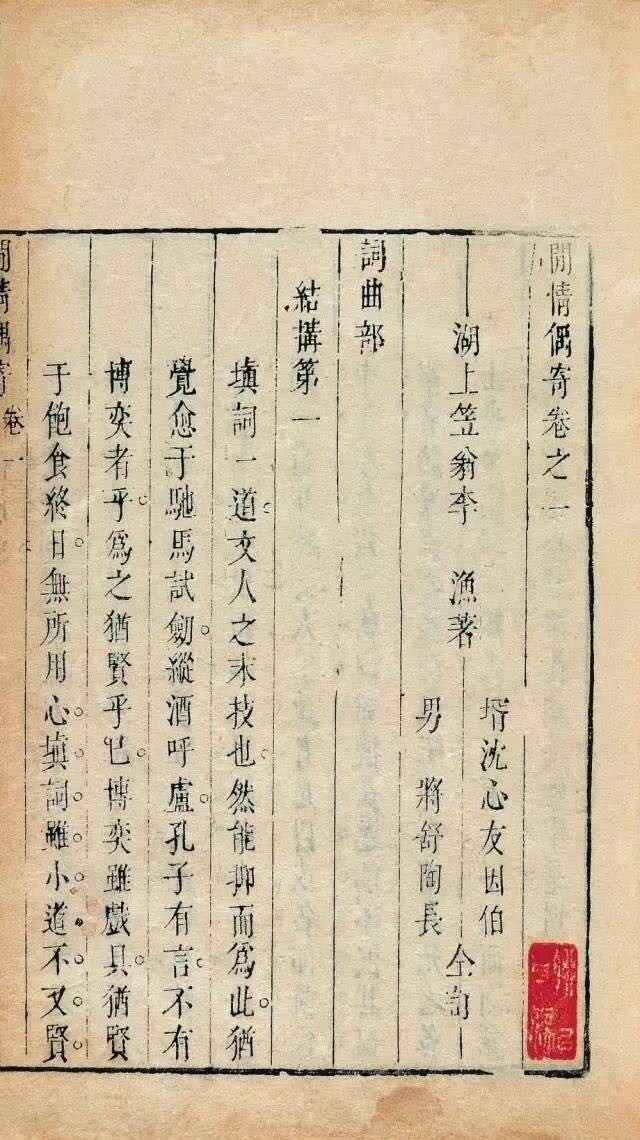 閒情偶寄卷之一
湖上笠翁李　漁著
壻沈心友因伯
男　將舒陶長
仝訂
詞曲部
結構第一
填詞一道。文人之末技也。然能抑而爲此。猶
覺愈于馳馬試劒。縱酒呼盧。孔子有言。不有
博奕者乎。爲之猶賢乎已。博奕雖戲具。猶賢
于飽食終日。無所用心。填詞雖小道。不又賢
閒情偶寄　卷一